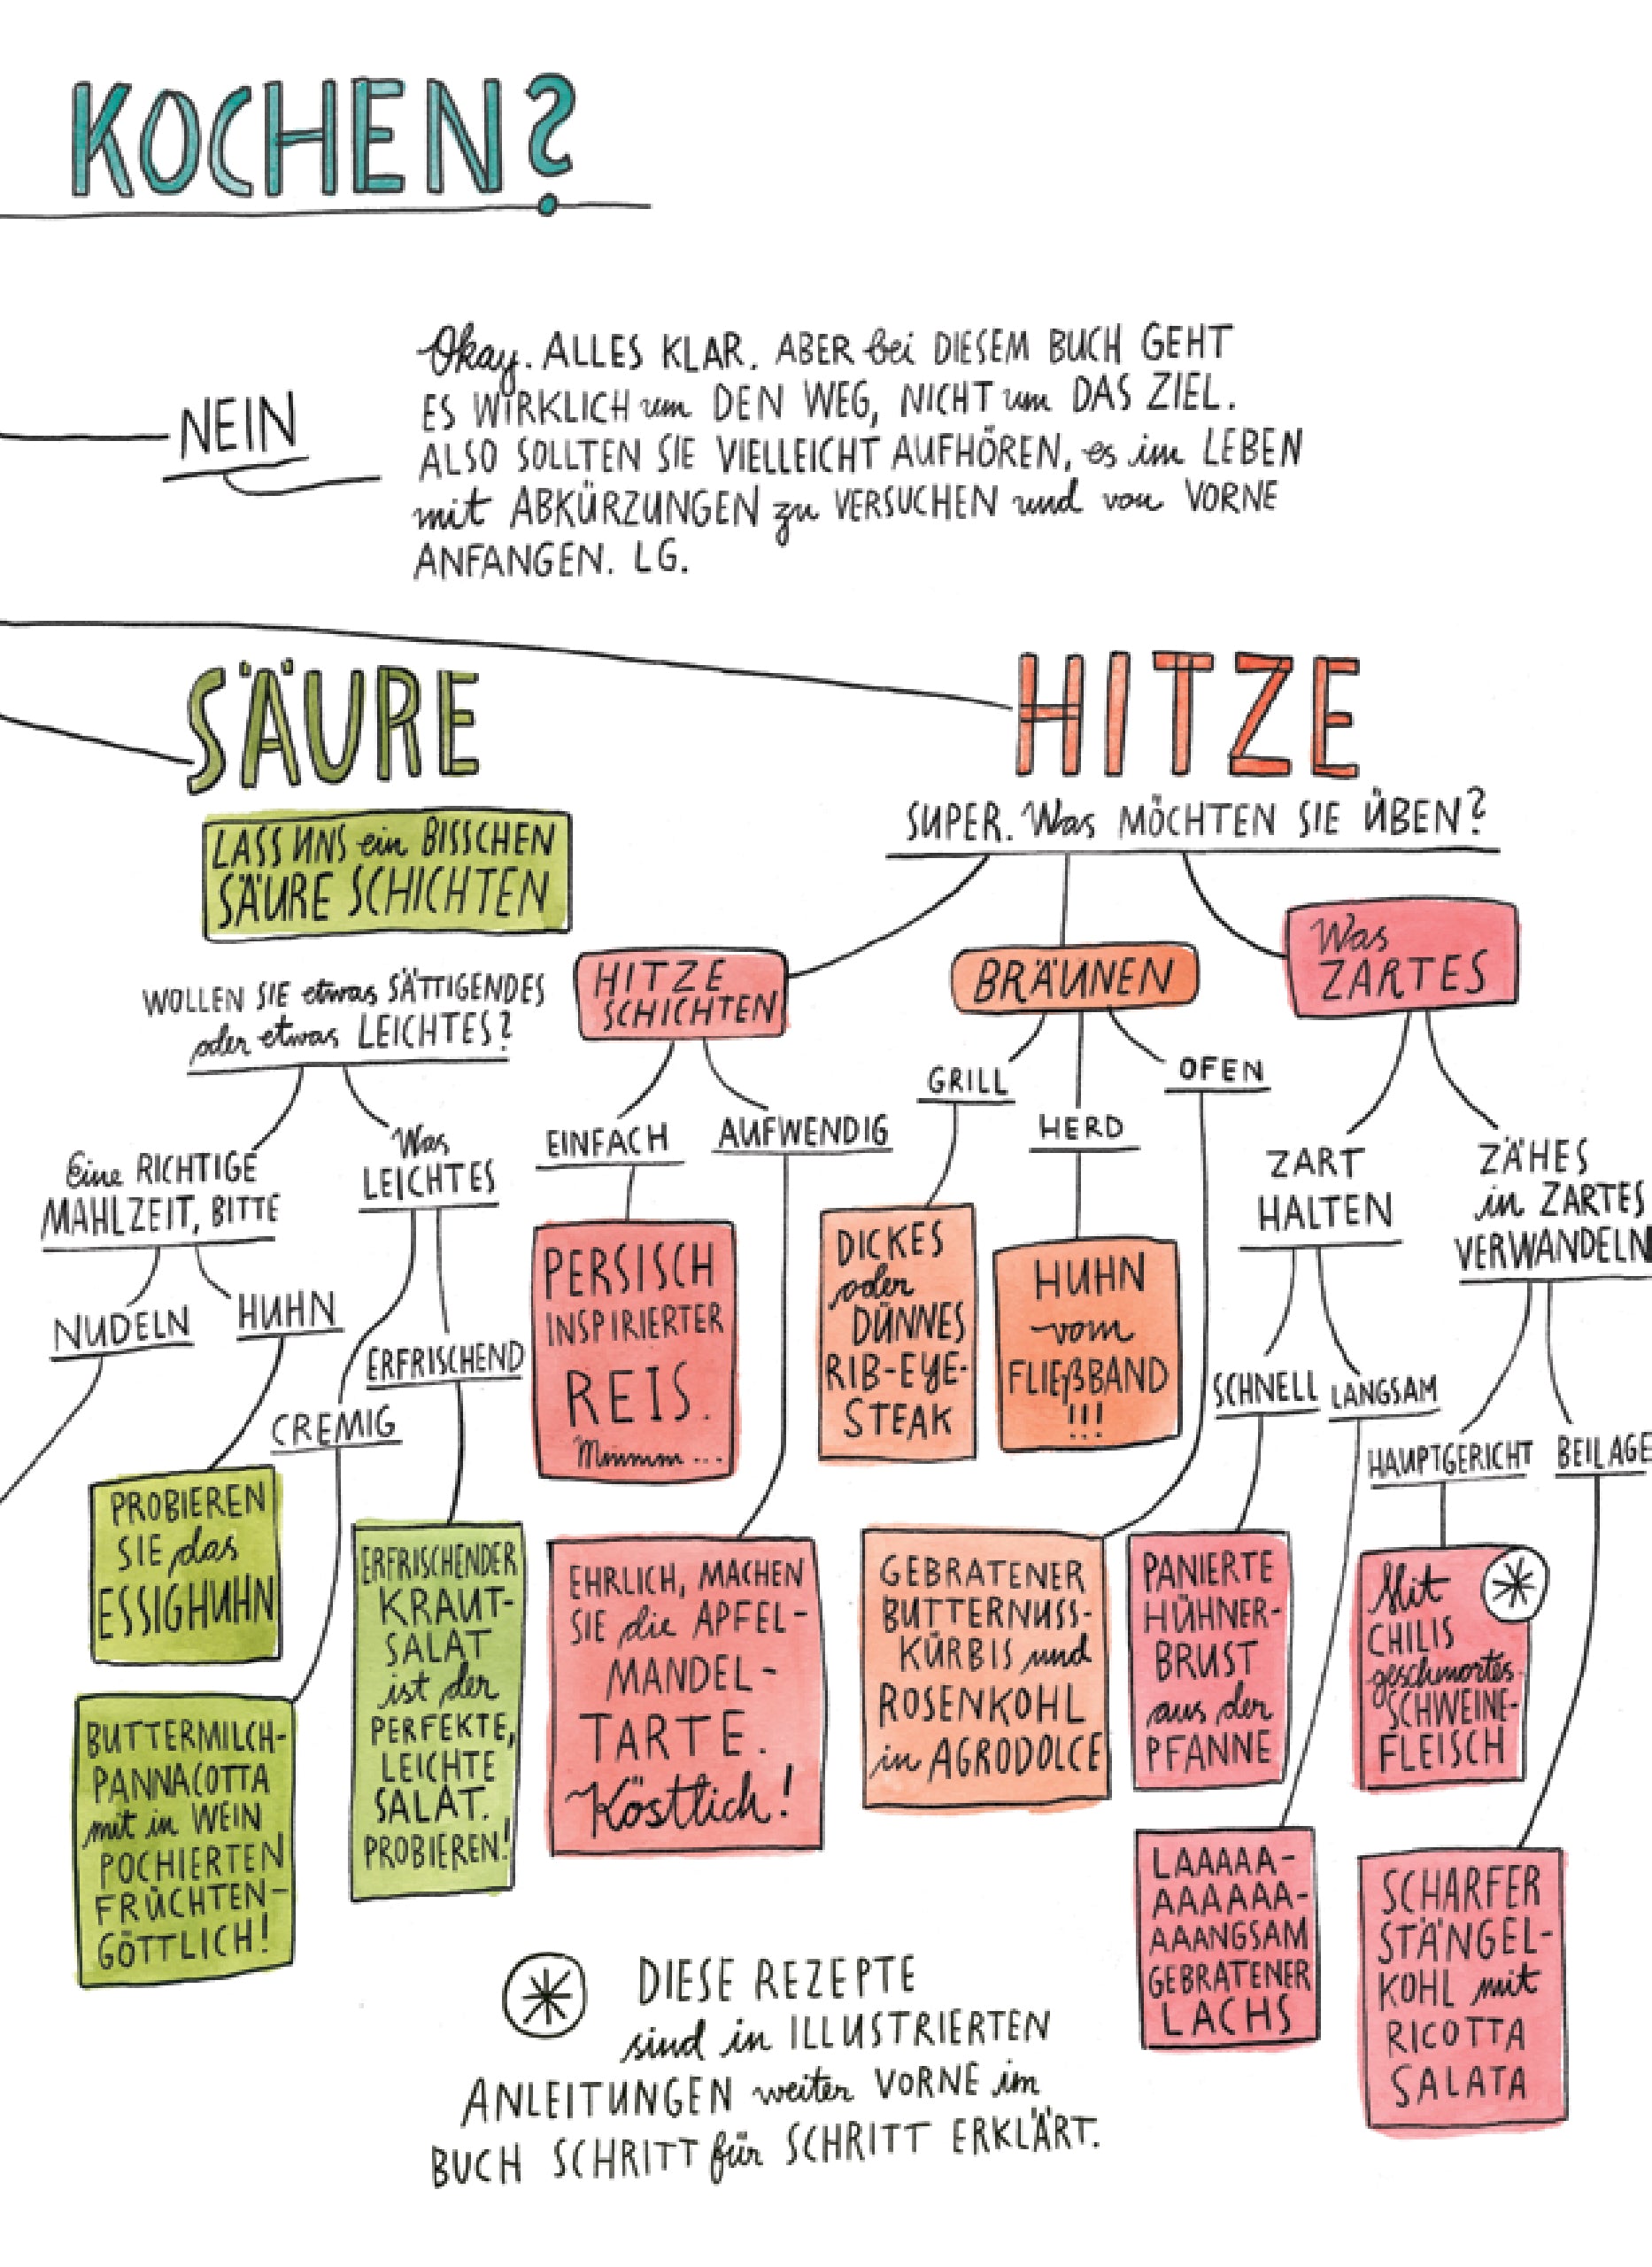 KOCHEN?
NEIN
Okay. ALLES KLAR. ABER bei DIESEM BUCH GEHT
ES WIRKLICH um DEN WEG, NICHT um DAS ZIEL.
ALSO SOLLTEN SIE VIELLEICHT AUFHÖREN, es im LEBEN
mit ABKÜRZUNGEN zu VERSUCHEN und von VORNE
ANFANGEN. LG.
SÄURE
LASS UNS ein BISSCHEN
SÄURE SCHICHTEN
WOLLEN SIE etwas SÄTTIGENDES
oder etwas LEICHTES?
Eine RICHTIGE
MAHLZEIT, BITTE
Was
LEICHTES
NUDELN
HUHN
CREMIG
ERFRISCHEND
PROBIEREN
SIE das
ESSIGHUHN
BUTTERMILCH-
PANNACOTTA
mit in WEIN
POCHIERTEN
FRÜCHTEN-
GÖTTLICH!
ERFRISCHENDER
KRAUT-
SALAT
ist der
PERFEKTE,
LEICHTE
SALAT.
PROBIEREN!
HITZE
SUPER. Was MÖCHTEN SIE ÜBEN?
HITZE
SCHICHTEN
EINFACH
AUFWENDIG
PERSISCH
INSPIRIERTER
REIS.
Mmmmm...
EHRLICH, MACHEN
SIE die APFEL-
MANDEL-
TARTE.
Köstlich!
BRÄUNEN
GRILL
HERD
OFEN
DICKES
oder
DÜNNES
RIB-EYE-
STEAK
HUHN
vom
FLIEßBAND
!!!
GEBRATENER
BUTTERNUSS-
KÜRBIS und
ROSENKOHL
in AGRODOLCE
Was
ZARTES
ZART
HALTEN
ZÄHES
in ZARTES
VERWANDELN
SCHNELL
LANGSAM
HAUPTGERICHT
BEILAGE
PANIERTE
HÜHNER-
BRUST
aus der
PFANNE
LAAAAA-
AAAAAA-
AAANGSAM
GEBRATENER
LACHS
Mit
CHILIS
geschmortes
SCHWEINE-
FLEISCH
SCHARFER
STÄNGEL-
KOHL mit
RICOTTA
SALATA
DIESE REZEPTE
sind in ILLUSTRIERTEN
ANLEITUNGEN weiter VORNE im
BUCH SCHRITT für SCHRITT ERKLÄRT.